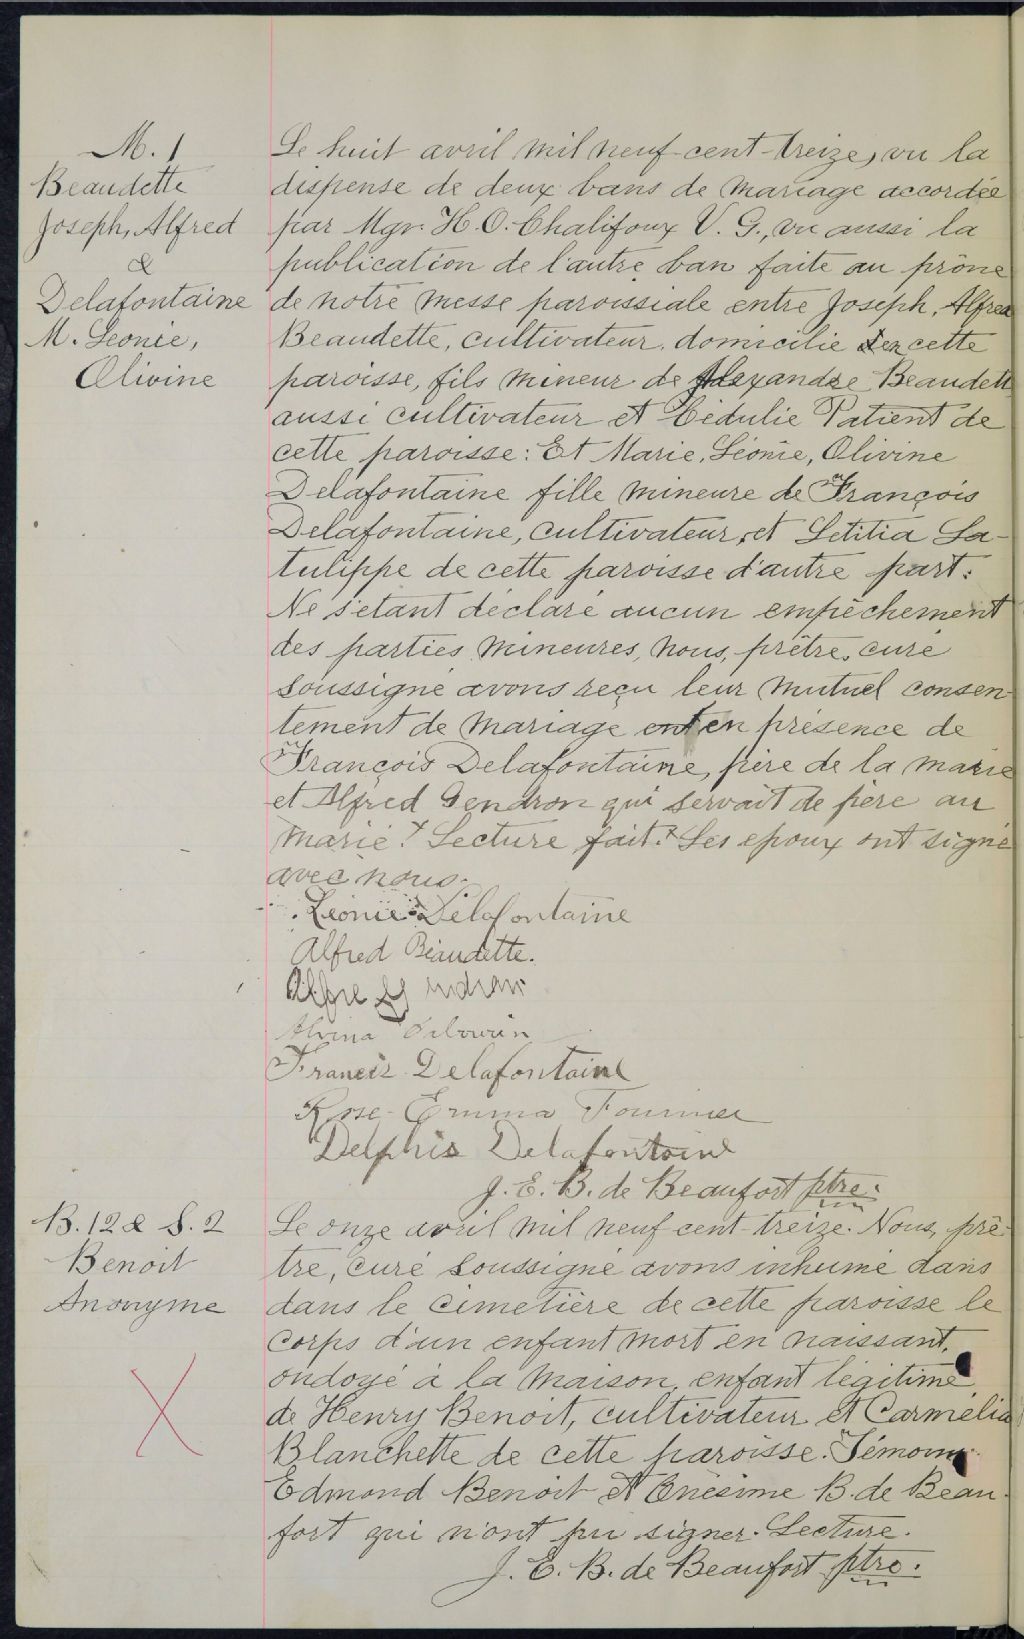 M. 1
Beaudette
Joseph, Alfred
&
Delafontaine
M. Leonie,
Olivine
Le huit avril mil neuf-cent-treize, vu la
dispense de deux bans de mariage accordée
par Mgr. H. O. Chalifoux V. G., vu aussi la
publication de l'autre ban faite au prône
de notre messe paroissiale entre Joseph, Alfred
Beaudette, cultivateur, domicilié en cette
paroisse, fils mineur de Alexandre Beaudett
aussi cultivateur et Cédulie Patient de
cette paroisse: Et Marie, Léonie, Olivine
Delafontaine fille mineure de François
Delafontaine, cultivateur, et Letitia La-
tulippe de cette paroisse d'autre part:
Ne s'étant déclaré aucun empêchement
des parties mineures, nous, prêtre, curé
soussigné avons reçu leur mutuel consen-
tement de mariage en présence de
François Delafontaine, père de la marie
et Alfred Gendron qui servait de père au
marié. Lecture fait. Les epoux ont signé
avec nous.
Léonie Delafontaine
Alfred Beaudette.
Alfre Gendron
Alvina
Francis Delafontaine
Rose-Emma Fournier
Delphis Delafontaine
J. E. B. de Beaufort ptre.
B. 12 & S. 2
Benoit
Anonyme
Le onze avril mil neuf cent-treize. Nous, prê-
tre, curé soussigné avons inhumé dans
dans le cimetière de cette paroisse le
corps d'un enfant mort en naissant,
ondoyé à la maison, enfant légitime
de Henry Benoit, cultivateur et Carmélia
Blanchette de cette paroisse. Témoins
Edmond Benoit et Onésime B. de Beau-
fort qui n'ont pu signer. Lecture.
J. E. B. de Beaufort ptre.